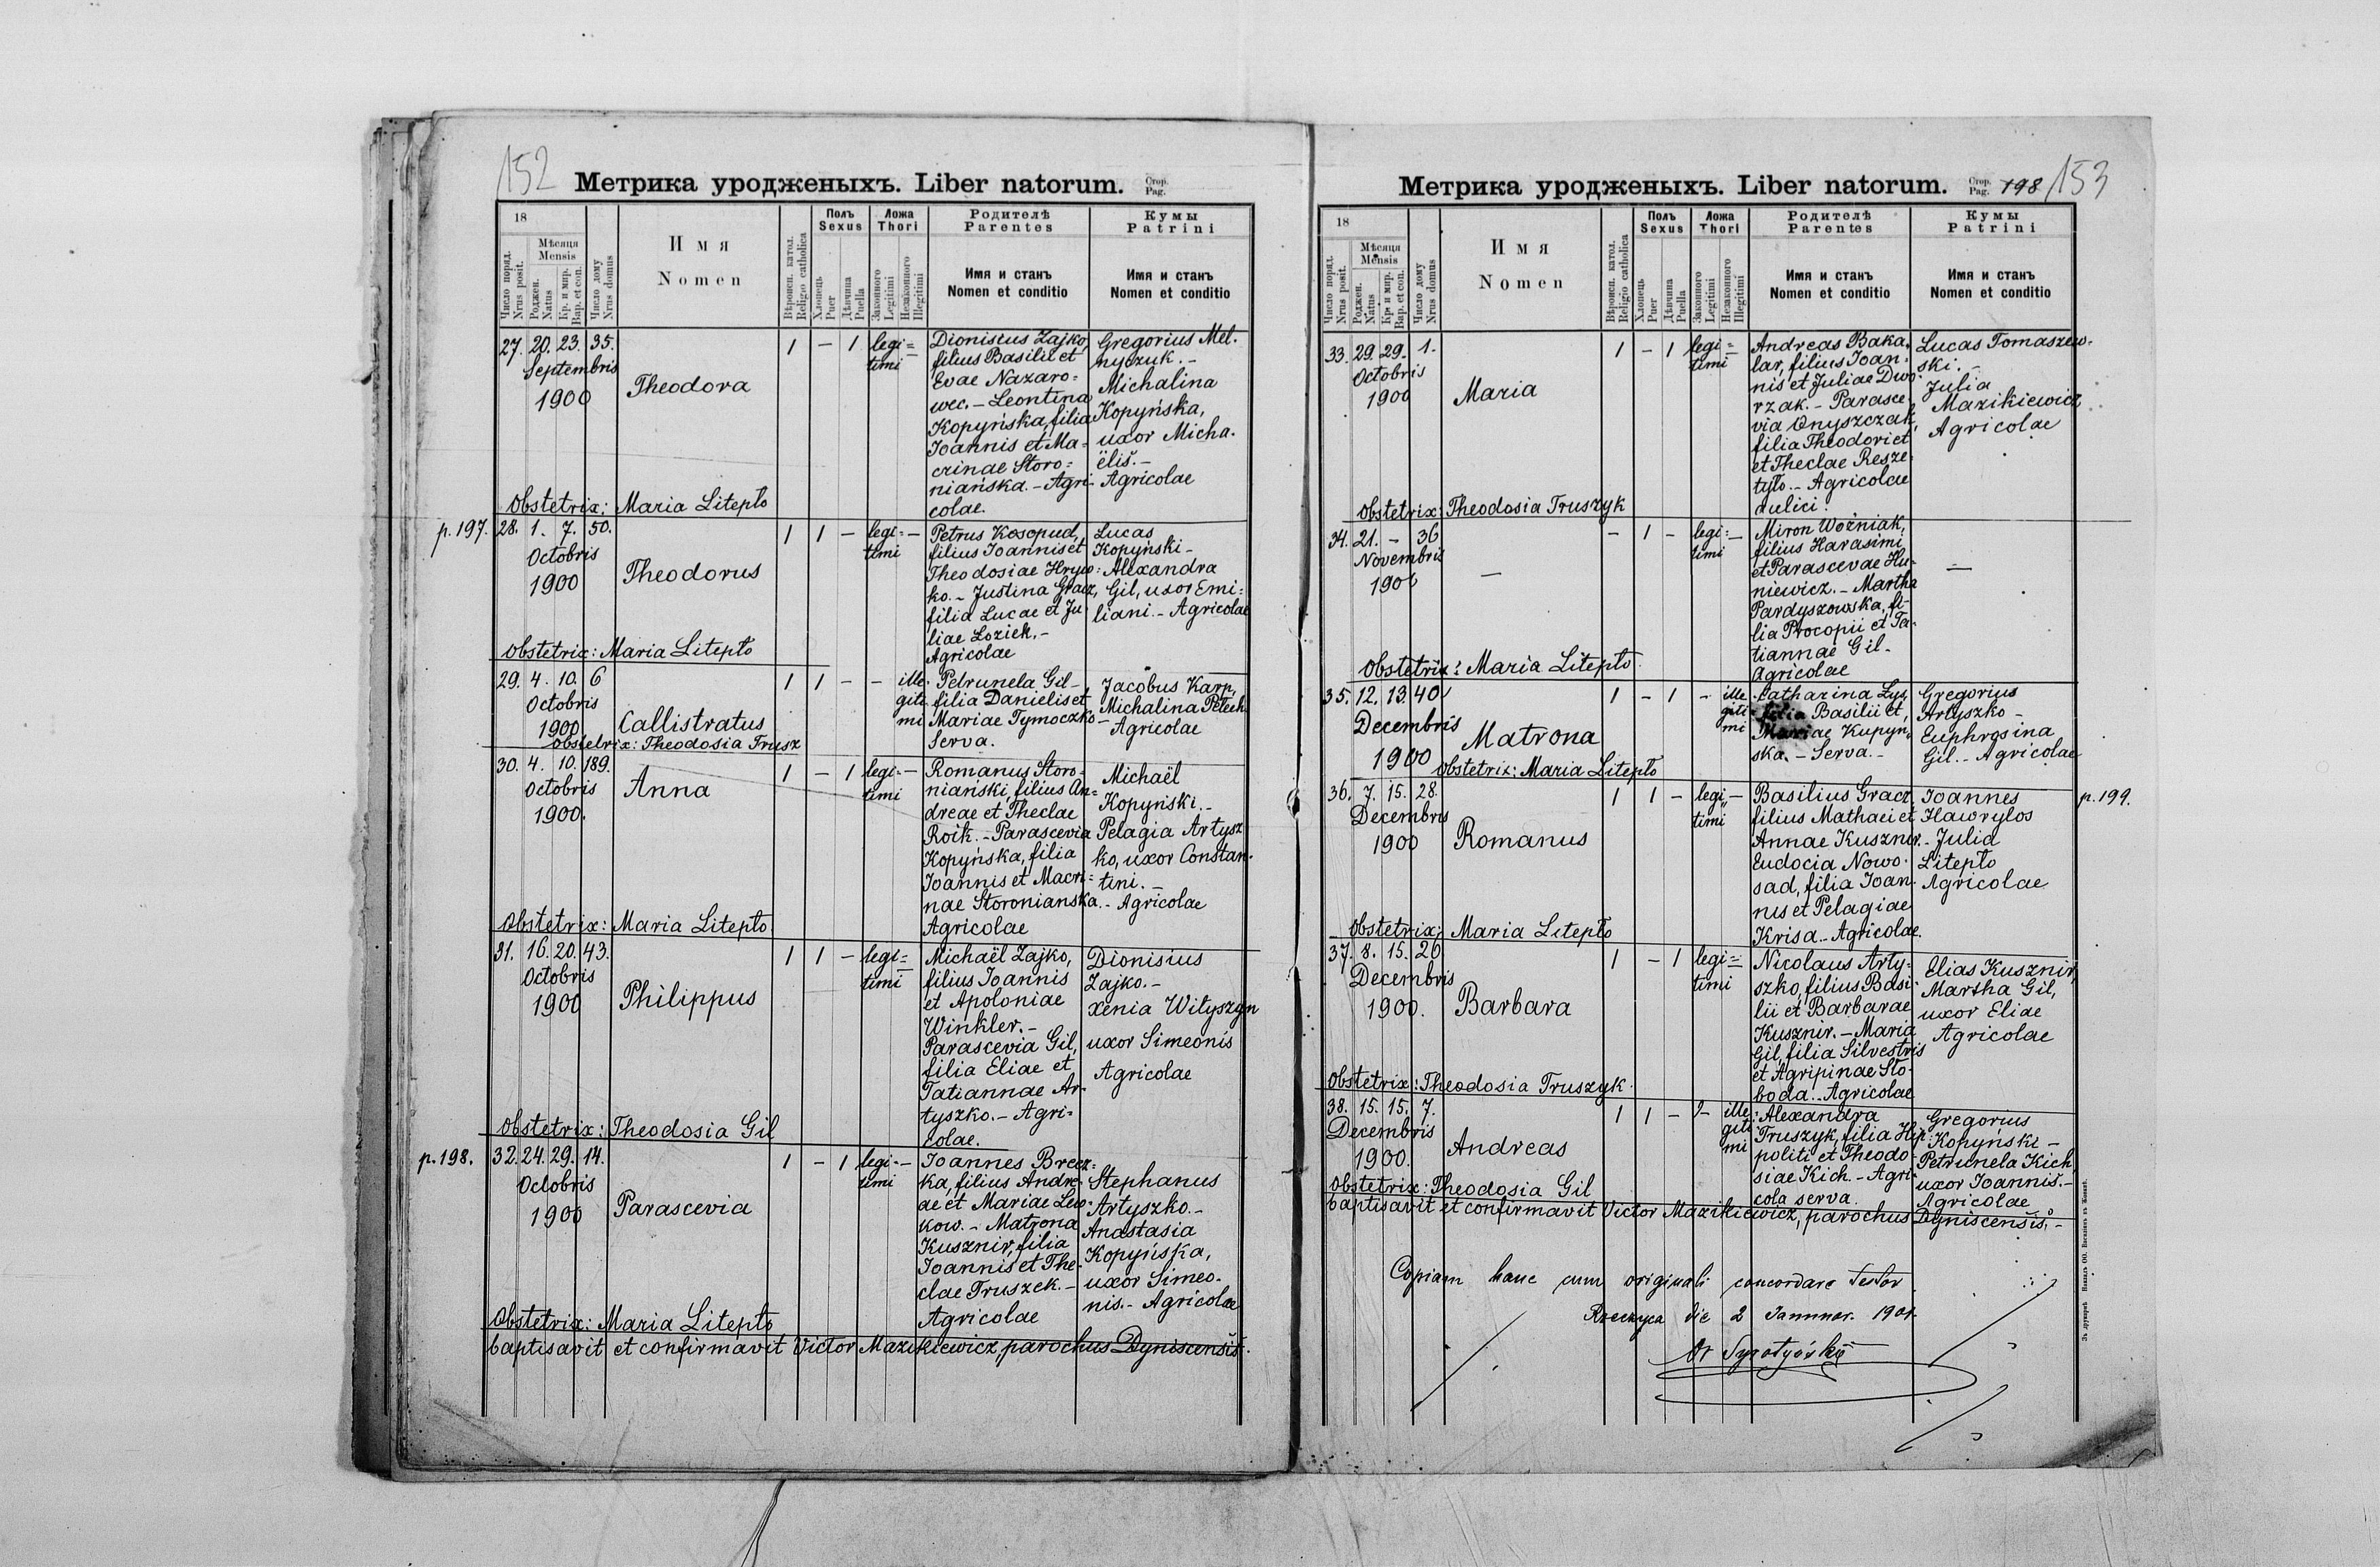 152
Метрика уродженыхъ. Liber natorum. Стор. Pag.
18
Число поряд. Nrus posit.
Мѣсяця Mensis
Роджен. Natus
Кр. и мир. Bap. et con.
Число дому Nrus domus
Имя
Nomen
Вѣроисп. катол. Religio catholica
Полъ Sexus
Хлопець Puer
Дѣвчина Puella
Ложа Thori
Законного Legitimi
Незаконного Illegitimi
Родителѣ Parentes
Имя и станъ
Nomen et conditio
Кумы Patrini
Имя и станъ
Nomen et conditio
27. 20. 23. 35.
Septembris
1900
Theodora
1 – 1 legi=
timi
Dionisius Zajko,
filius Basilii et
Evae Nazaro=
wec. – Leontina
Kopyńska, filia
Joannis et Ma=
crinae Storo=
niańska. – Agri-
colae.
Gregorius Mel.
nyczuk. –
Michalina
Kopyńska,
uxor Micha.
ëlis. –
Agricolae
Obstetrix: Maria Litepło
p. 197.
28. 1. 7. 50.
Octobris
1900
Theodorus
1 1 – legi= –
timi
Petrus Kosopud,
filius Joannis et
Theodosiae Hryw=
ko. – Justina Gracz,
filia Lucae et Ju
liae Łoziek. –
Agricolae
Lucas
Kopyński –
Alexandra
Gil, uxor Emi=
liani. – Agricolae
Obstetrix: Maria Litepło
29. 4. 10. 6
Octobris
1900
Callistratus
1 1 – – ille.
giti
mi
Petrunela Gil –
filia Danielis et
Mariae Tymoczko –
Serva.
Jacobus Karp,
Michalina Petech
Agricolae
Obstetrix: Theodosia Trusz
30. 4. 10. 189.
Octobris
1900.
Anna
1 – 1 legi= –
timi
Romanus Storo=
niański, filius An=
dreae et Theclae
Roik. – Parascevia
Kopyńska, filia
Joannis et Macri=
nae Storonianska. –
Agricolae
Michaël
Kopyński. –
Pelagia Artysz
ko, uxor Constan.
tini. –
Agricolae
Obstetrix: Maria Litepło
31. 16. 20. 43.
Octobris
1900
Philippus
1 1 – legi=
timi
Michaël Zajko,
filius Joannis
et Apoloniae
Winkler. –
Parascevia Gil,
filia Eliae et
Tatiannae Ar-
tyszko. – Agri=
colae.
Dionisius
Zajko. –
Xenia Wityszyn
uxor Simeonis
Agricolae
Obstetrix: Theodosia Gil
p. 198.
32. 24. 29. 14.
Octobris
1900
Parascevia
1 – 1 legi= –
timi
Joannes Brecz=
ka, filius Andre-
ae et Mariae Lew
kow. – Matrona
Kusznir, filia
Joannis et The-
clae Truszek. –
Agricolae
Stephanus
Artyszko. –
Anastasia
Kopyńska,
uxor Simeo-
nis. – Agricolae
Obstetrix: Maria Litepło
baptisavit et confirmavit Victor Mazikiewicz, parochus Dyniscensis.
Метрика уродженыхъ. Liber natorum. Стор. Pag. 198
153
18
Число поряд. Nrus posit.
Мѣсяця Mensis
Роджен. Natus
Кр. и мир. Bap. et con.
Число дому Nrus domus
Имя
Nomen
Вѣроисп. катол. Religio catholica
Полъ Sexus
Хлопець Puer
Дѣвчина Puella
Ложа Thori
Законного Legitimi
Незаконного Illegitimi
Родителѣ Parentes
Имя и станъ
Nomen et conditio
Кумы Patrini
Имя и станъ
Nomen et conditio
33. 29. 29. 1.
Octobris
1900
Maria
1 – 1 legi=
timi
Andreas Baka.
lar, filius Joan=
nis et Juliae Dwo
rzak. – Parasce
via Onyszczak,
filia Theodori et
et Theclae Resze=
tyło. – Agricolae
dulici.
Lucas Tomaszew.
ski. –
Julia
Mazikiewicz
Agricolae
Obstetrix: Theodosia Truszyk
34. 21. – 36
Novembris
1900
–
– 1 – legi= –
timi
Miron Woźniak,
filius Harasimi
et Parascevae Hu-
niewicz. – Martha
Pardyszowska, fi-
lia Procopii et Ta-
tiannae Gil –
Agricolae
–
Obstetrix: Maria Litepło.
35. 12. 13. 40
Decembris
1900
Matrona
1 – 1 – ille
giti
mi
Catharina Lys,
filia Basilii et
Mariae Kupyn,
ska. – Serva. –
Gregorius
Artyszko –
Euphrosina
Gil. – Agricolae
Obstetrix: Maria Litepło
36. 7. 15. 28.
Decembris
1900
Romanus
1 1 – legi –
timi
Basilius Gracz,
filius Mathaei et
Annae Kusznir. –
Eudocia Nowo-
sad, filia Joan-
nis et Pelagiae
Krisa. – Agricolae.
Joannes
Hawrylos
Julia
Litepło
Agricolae
p. 199.
Obstetrix: Maria Litepło
37. 8. 15. 20
Decembris
1900.
Barbara
1 – 1 legi=
timi
Nicolaus Arty=
szko, filius Basi-
lii et Barbarae
Kusznir. – Maria
Gil, filia Silvestris
et Agripinae Sło-
boda. – Agricolae
Elias Kusznir,
Martha Gil,
uxor Eliae
Agricolae
Obstetrix: Theodosia Truszyk.
38. 15. 15. 7.
Decembris
1900.
Andreas
1 1 – – ille
giti
mi
Alexandra
Truszyk, filia Hip-
politi et Theodo-
siae Kich. – Agri-
cola serva.
Gregorius
Kopyński –
Petrunela Kich,
uxor Joannis. –
Agricolae
Obstetrix: Theodosia Gil
baptisavit et confirmavit Victor Mazikiewicz, parochus Dyniscensis. –
Copiam hanc cum originali concordare testor
Rzeczyca die 2 Januar. 1901.